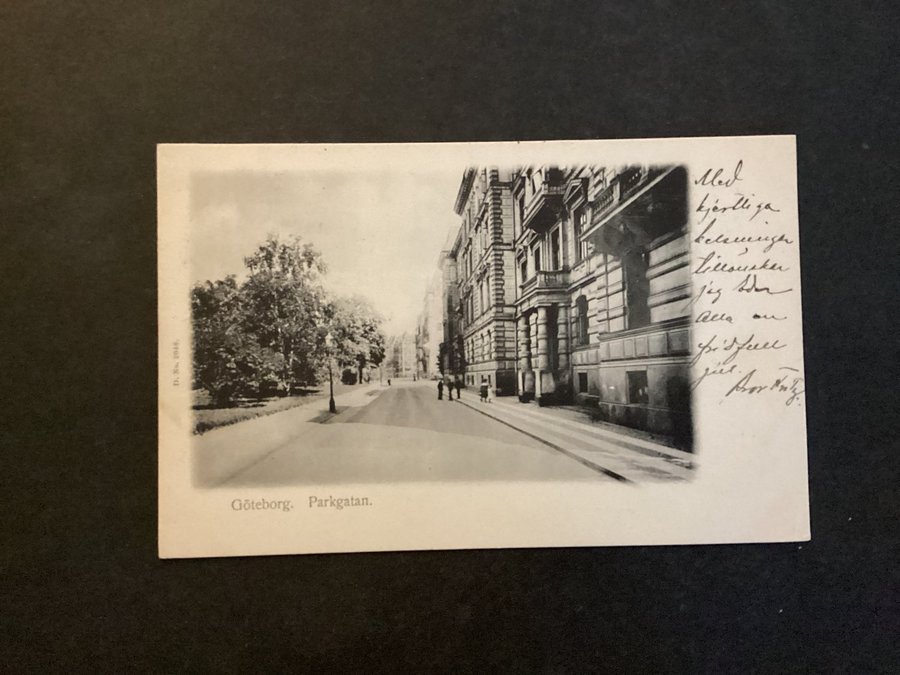 Med
hjertliga
helsningar
tillönskar
jag Eder
Alla en
fridfull
jul.
Bror Fritz.
D. No. 2018.
Göteborg. Parkgatan.